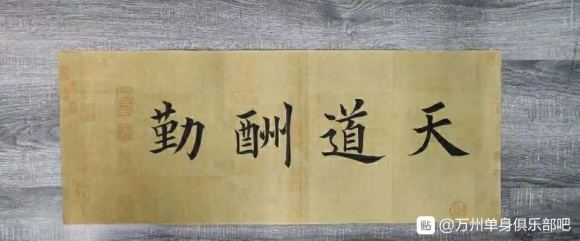 天道酬勤
贴 @万州单身俱乐部吧